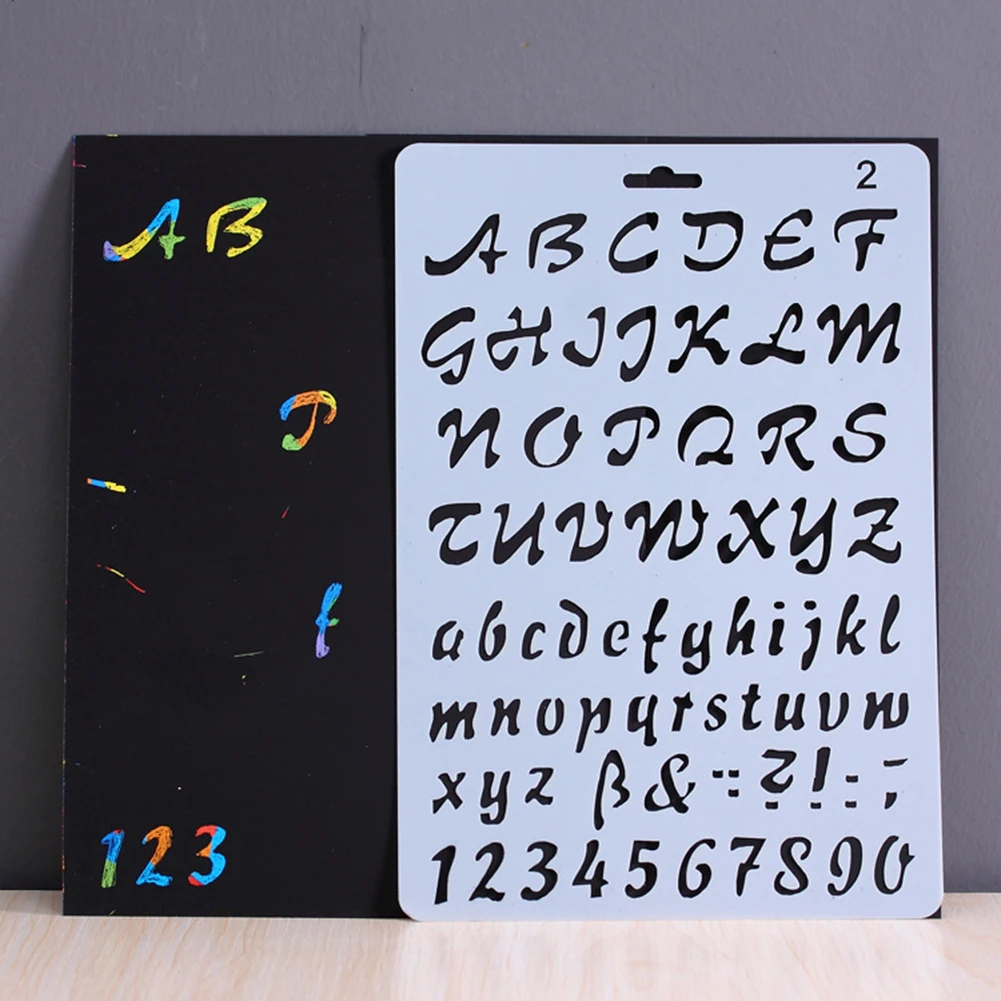 AB
P
f
123
2
ABCDEF
GHIJKLM
NOPQRS
TUVWXYZ
abcdefghijkl
mnopqrstuvw
xyz ß& :: ?! := ;
1234567890